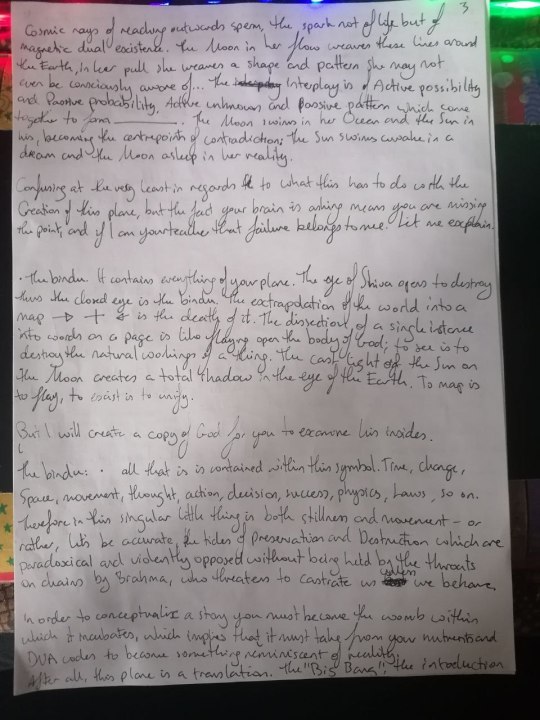 3
Cosmic rays of reaching outwards sperm, the spark not of life but of
magnetic dual existence. The Moon in her flow weaves these lines around
the Earth, in her pull she weaves a shape and pattern she may not
even be consciously aware of... The Interplay is of Active possibility
and Passive probability. Active unknowns and Passive pattern which come
together to form ________. The Moon swims in her Ocean and the Sun in
his, becoming the centrepoints of contradiction; The Sun swims awake in a
dream and the Moon asleep in her reality.
Confusing at the very least in regards to what this has to do with the
Creation of this plane, but the fact your brain is asking means you are missing
the point, and if I am your teacher that failure belongs to me. Let me explain.
· The bindu. It contains everything of your plane. The eye of Shiva opens to destroy
thus the closed eye is the bindu. The extrapolation of the world into a
map → + is the death of it. The dissection of a single instance
into words on a page is like flaying open the body of God; to see is to
destroy the natural workings of a thing. The cast light of the Sun on
the Moon creates a total shadow in the eye of the Earth. To map is
to flay, to exist is to unify.
But I will create a copy of God for you to examine his insides.
The bindu: · all that is is contained within this symbol. Time, change,
Space, movement, thought, action, decision, success, physics, Laws, so on.
Therefore in this singular little thing is both stillness and movement - or
rather, lets be accurate, the tides of Preservation and Destruction which are
paradoxical and violently opposed without being held by the throats
on chains by Brahma, who threatens to castrate us unless we behave.
In order to conceptualize a story you must become the womb within
which it incubates, which implies that it must take from your nutrients and
DNA codes to become something reminiscent of reality.
After all, this plane is a translation. The "Big Bang", the introduction